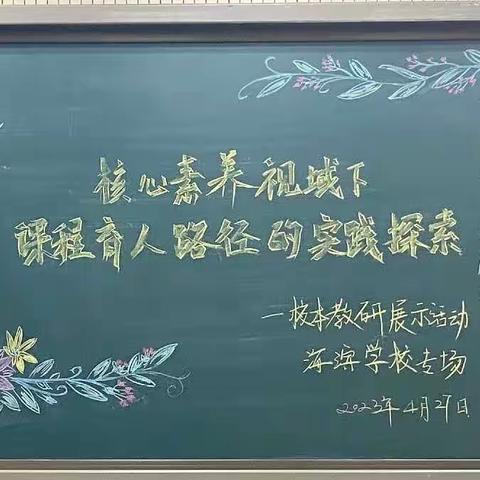 核心素养视域下
课程育人路径的实践探索
一校本教研展示活动
海滨学校专场
2023年4月27日